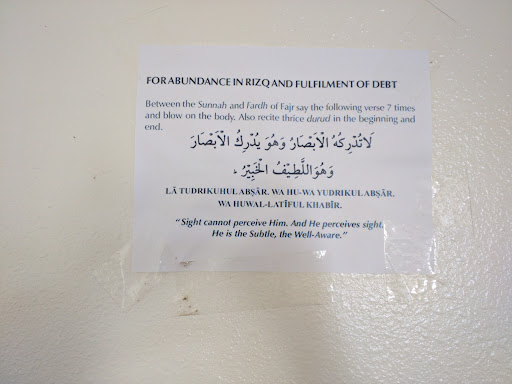 FOR ABUNDANCE IN RIZQ AND FULFILMENT OF DEBT
Between the Sunnah and Fardh of Fajr say the following verse 7 times
and blow on the body. Also recite thrice durud in the beginning and
end.
لَا تُدْرِكُهُ الْاَبْصَارُ وَهُوَ يُدْرِكُ الْاَبْصَارَ
وَهُوَ اللَّطِيْفُ الْخَبِيْرُ ۔
LĀ TUDRIKUHUL ABṢĀR. WA HU-WA YUDRIKUL ABṢĀR.
WA HUWAL-LATĪFUL KHABĪR.
“Sight cannot perceive Him. And He perceives sight.
He is the Subtle, the Well-Aware.”